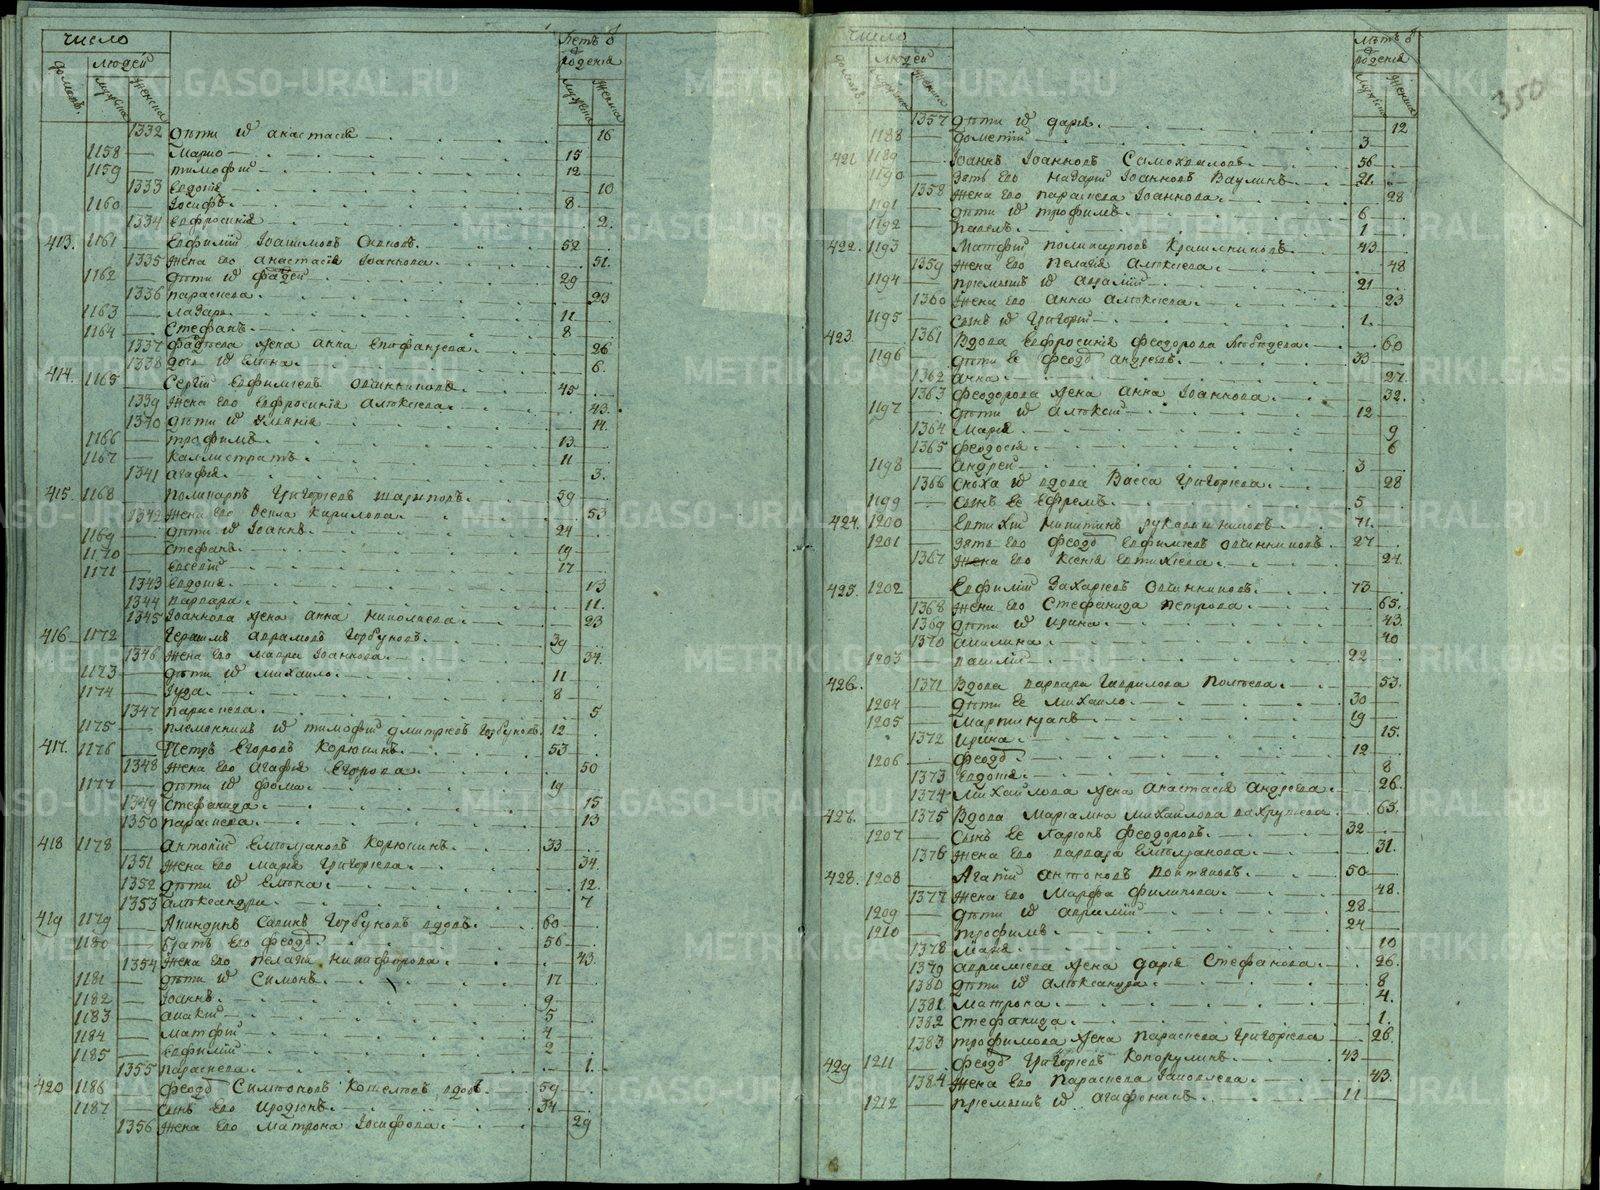 число
людей
домовъ
мужска
женска
летъ ѿ рождения
мужска
женска
1332 дѣти их анастасия 16
1158 Марко 15
1159 тимофѣй 12
1333 Евдокия 10
1160 Иосифъ 8
1334 Евфросиния 2
413 1161 Евфимий Иоакимовъ 52
1335 жена его анастасия Иоаннова 51
1162 дѣти их фадей 29
1336 параскева 23
1163 лазарь 11
1164 Стефанъ 8
1337 фадѣева жена анна Епифаньева 26
1338 дочь их Елена 6
414 1165 Сергий Евфимиевъ овчинниковъ 45
1339 жена его Евфросиния алексиева 43
1340 дѣти их Улиания 14
1166 трофимъ 13
1167 Каллистратъ 11
1341 агафия 3
415 1168 поликарпъ григориевъ шарыповъ 59
1342 жена его Фекла Кирилова 53
1169 дѣти их Иоаннъ 24
1170 Стефанъ 19
1171 Евсевий 17
1343 Евдокия 13
1344 варвара 11
1345 Иоаннова жена анна николаева 23
416 1172 Герасимъ аврамовъ Горбуновъ 39
1346 жена его мавра Иоаннова 34
1173 дѣти их михаило 11
1174 Иуда 8
1347 параскева 5
1175 племянникъ их тимофей дмитриевъ горбуновъ 12
417 1176 Петръ Егоровъ Корюкинъ 53
1348 жена его Агафия Егорова 50
1177 дѣти их фома 19
1349 стефанида 15
1350 параскева 13
418 1178 антоний Емельяновъ Корюкинъ 33
1351 жена его мария григориева 34
1352 дѣти их Елена 12
1353 александра 7
419 1179 Акиндинъ Савинъ Горбуновъ вдовъ 60
1180 братъ его феодоръ 56
1354 жена его пелагия никифорова 43
1181 дѣти их Симонъ 17
1182 Иоаннъ 9
1183 акакий 5
1184 матфий 4
1185 Евфимий 2
1355 параскева 1
420 1186 феодоръ Симеоновъ Кошелевъ, вдовъ 59
1187 сынъ его Иродионъ 34
1356 жена его матрона Иосифова 29
350
число
людей
домовъ
мужска
женска
лѣтъ ѿ рождения
мужска
женска
1357 дѣти их дария 12
1188 дометий 3
421 1189 Иоаннъ Иоанновъ Самохваловъ 56
1190 зять его назарий Иоанновъ Ваулинъ 21
1358 жена его параскева Иоаннова 28
1191 дѣти их трофимъ 6
1192 павелъ 1
422 1193 Матфий поликарповъ Крашениниковъ 43
1359 жена его пелагия алексиева 48
1194 приемышъ их 21
1360 жена его анна алексиева 23
1195 сынъ их григорий 1
423 1361 вдова Евфросиния феодорова 60
1196 дѣти ее феодоръ андреевъ 33
1362 анна 27
1363 феодорова жена анна Иоаннова 32
1197 дѣти их алексий 12
1364 Мария 9
1365 феодосия 6
1198 андрей 3
1366 сноха их вдова Васса григориева 28
1199 сынъ ее Ефремъ 5
424 1200 Евтихий никитинъ рукавишниковъ 71
1201 зять его феодоръ Евфимиевъ овчинниковъ 27
1367 жена его Ксения Евтихиева 24
425 1202 Евфимий Захариевъ овчинниковъ 73
1368 жена его Стефанида петрова 65
1369 дѣти их ирина 43
1370 акилина 40
1203 василий 22
426 1371 вдова варвара гаврилова 53
1204 дѣти ее михаило 30
1205 Мартиниянъ 19
1372 ирина 15
1206 феодоръ 12
1373 Евдокия 8
1374 михайлова жена анастасия андреева 26
427 1375 вдова Мариамна михайлова вахрушева 63
1207 сынъ ее Ларионъ феодоровъ 32
1376 жена его варвара Емельянова 31
428 1208 Агапий антоновъ 50
1377 жена его Марфа филипова 48
1209 дѣти их 28
1210 трофимъ 24
1378 мария 10
1379 жена дария Стефанова 26
1380 дѣти их александра 8
1381 матрона 4
1382 стефанида 1
1383 трофимова жена параскева григориева 26
429 1211 феодоръ григориевъ Копорулинъ 43
1384 жена его параскева Иаковлева 43
1212 приемышъ их агафоникъ 11